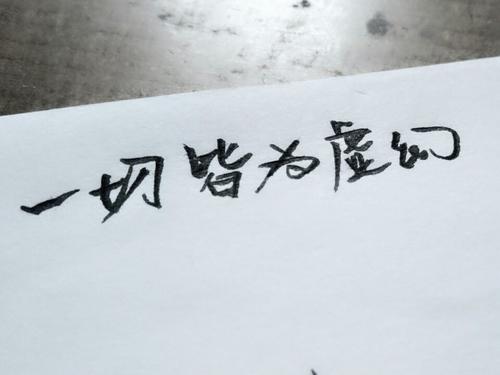 一切皆为虚幻